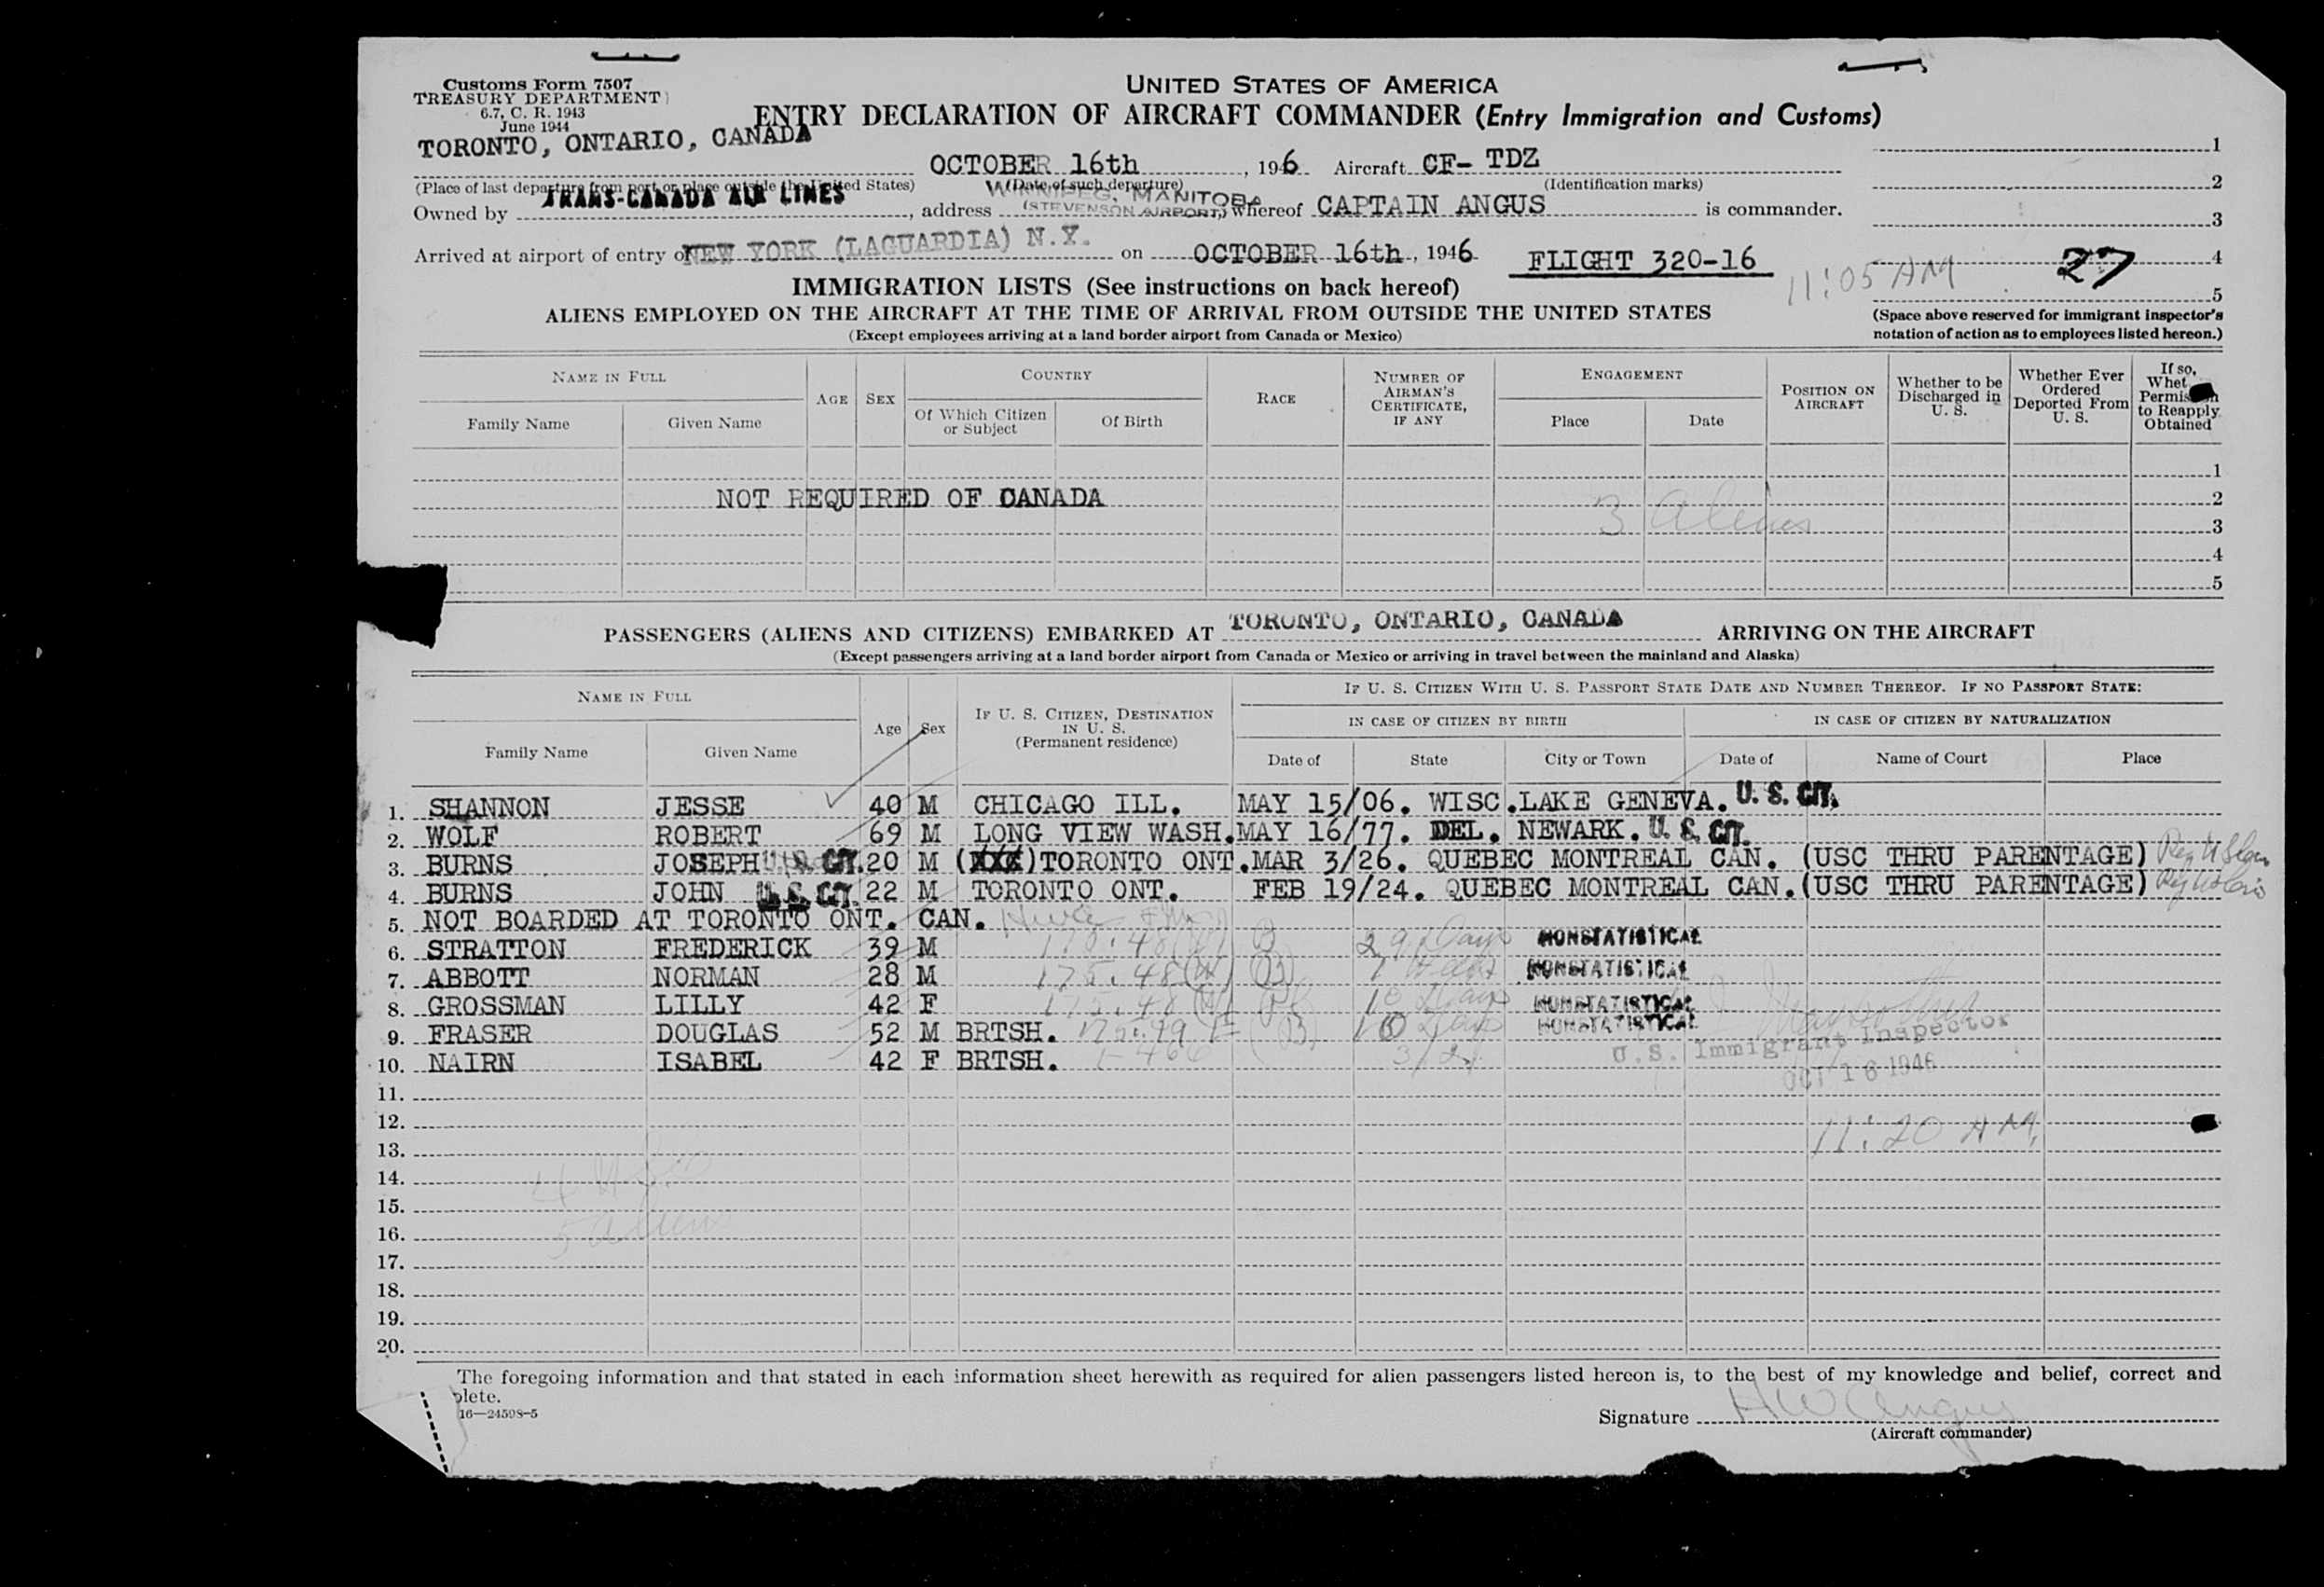 Customs Form 7507
TREASURY DEPARTMENT
6.7, C. R. 1943
June 1944
UNITED STATES OF AMERICA
ENTRY DECLARATION OF AIRCRAFT COMMANDER (Entry Immigration and Customs)
TORONTO, ONTARIO, CANADA
OCTOBER 16th, 1946 Aircraft CF- TDZ
(Place of last departure from port or place outside the United States) (Date of such departure) (Identification marks)
Owned by TRANS-CANADA AIR LINES, address WINNIPEG, MANITOBA (STEVENSON AIRPORT,) whereof CAPTAIN ANGUS is commander.
Arrived at airport of entry of NEW YORK (LAGUARDIA) N.Y. on OCTOBER 16th, 1946 FLIGHT 320-16
11:05 AM
27
1
2
3
4
5
(Space above reserved for immigrant inspector's
notation of action as to employees listed hereon.)
IMMIGRATION LISTS (See instructions on back hereof)
ALIENS EMPLOYED ON THE AIRCRAFT AT THE TIME OF ARRIVAL FROM OUTSIDE THE UNITED STATES
(Except employees arriving at a land border airport from Canada or Mexico)
NAME IN FULL
Family Name Given Name
AGE SEX
COUNTRY
Of Which Citizen or Subject Of Birth
RACE
NUMBER OF AIRMAN'S CERTIFICATE, IF ANY
ENGAGEMENT
Place Date
POSITION ON AIRCRAFT
Whether to be Discharged in U. S.
Whether Ever Ordered Deported From U. S.
If so, Whet Permis n to Reapply Obtained
1
NOT REQUIRED OF CANADA 3 Aliens 2
3
4
5
PASSENGERS (ALIENS AND CITIZENS) EMBARKED AT TORONTO, ONTARIO, CANADA ARRIVING ON THE AIRCRAFT
(Except passengers arriving at a land border airport from Canada or Mexico or arriving in travel between the mainland and Alaska)
NAME IN FULL
Family Name Given Name
Age Sex
IF U. S. CITIZEN, DESTINATION IN U. S. (Permanent residence)
IF U. S. CITIZEN WITH U. S. PASSPORT STATE DATE AND NUMBER THEREOF. IF NO PASSPORT STATE:
IN CASE OF CITIZEN BY BIRTH IN CASE OF CITIZEN BY NATURALIZATION
Date of State City or Town Date of Name of Court Place
1. SHANNON JESSE 40 M CHICAGO ILL. MAY 15/06. WISC. LAKE GENEVA. U. S. CIT.
2. WOLF ROBERT 69 M LONG VIEW WASH. MAY 16/77. DEL. NEWARK. U. S. CIT.
3. BURNS JOSEPH U. S. CIT. 20 M (XXX) TORONTO ONT. MAR 3/26. QUEBEC MONTREAL CAN. (USC THRU PARENTAGE)
4. BURNS JOHN U. S. CIT. 22 M TORONTO ONT. FEB 19/24. QUEBEC MONTREAL CAN. (USC THRU PARENTAGE)
5. NOT BOARDED AT TORONTO ONT. CAN.
6. STRATTON FREDERICK 39 M 175.48 29 Days NONSTATISTICAL
7. ABBOTT NORMAN 28 M 175.48 (W) (B) NONSTATISTICAL
8. GROSSMAN LILLY 42 F 175.48 10 Days NONSTATISTICAL
9. FRASER DOUGLAS 52 M BRTSH. (B) 10 Days NONSTATISTICAL
10. NAIRN ISABEL 42 F BRTSH.
U.S. Immigrant Inspector
OCT 16 1946
11.
12.
11:20 AM
13.
14.
15.
5 aliens
16.
17.
18.
19.
20.
The foregoing information and that stated in each information sheet herewith as required for alien passengers listed hereon is, to the best of my knowledge and belief, correct and
plete.
16—24598-5
Signature HW Angus
(Aircraft commander)